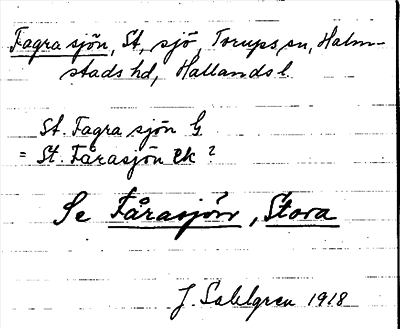 Fagra sjön, St, sjö, Torups sn, Halm-
stads hd, Hallands l.
St. Fagra sjön G
= St. Fårasjön Ek ?
Se Fårasjön, Stora
J. Sahlgren 1918